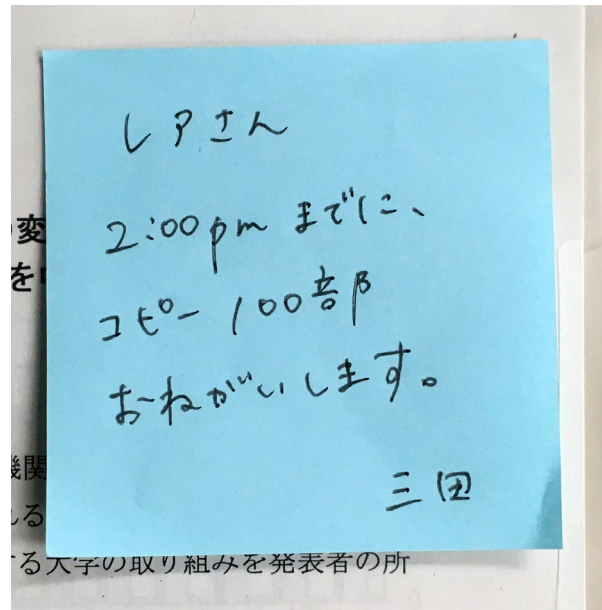 レアさん
2:00pm までに、
コピー 100部
おねがいします。
三田
変
を
機関
る
る大学の取り組みを発表者の所